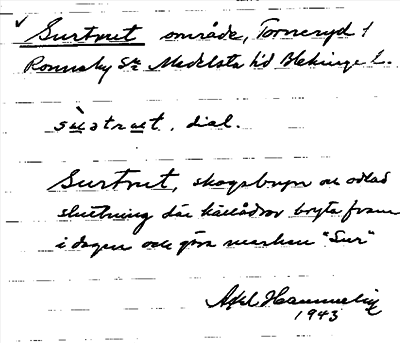 Surtvet område, Torneryd 1
Ronneby Sn Medelsta hd Blekinge l.
dial.
Surtvet, skogsbryn och odlad
sluttning där källådror bryta fram
i dagen och göra marken "Sur"
Axel
1943